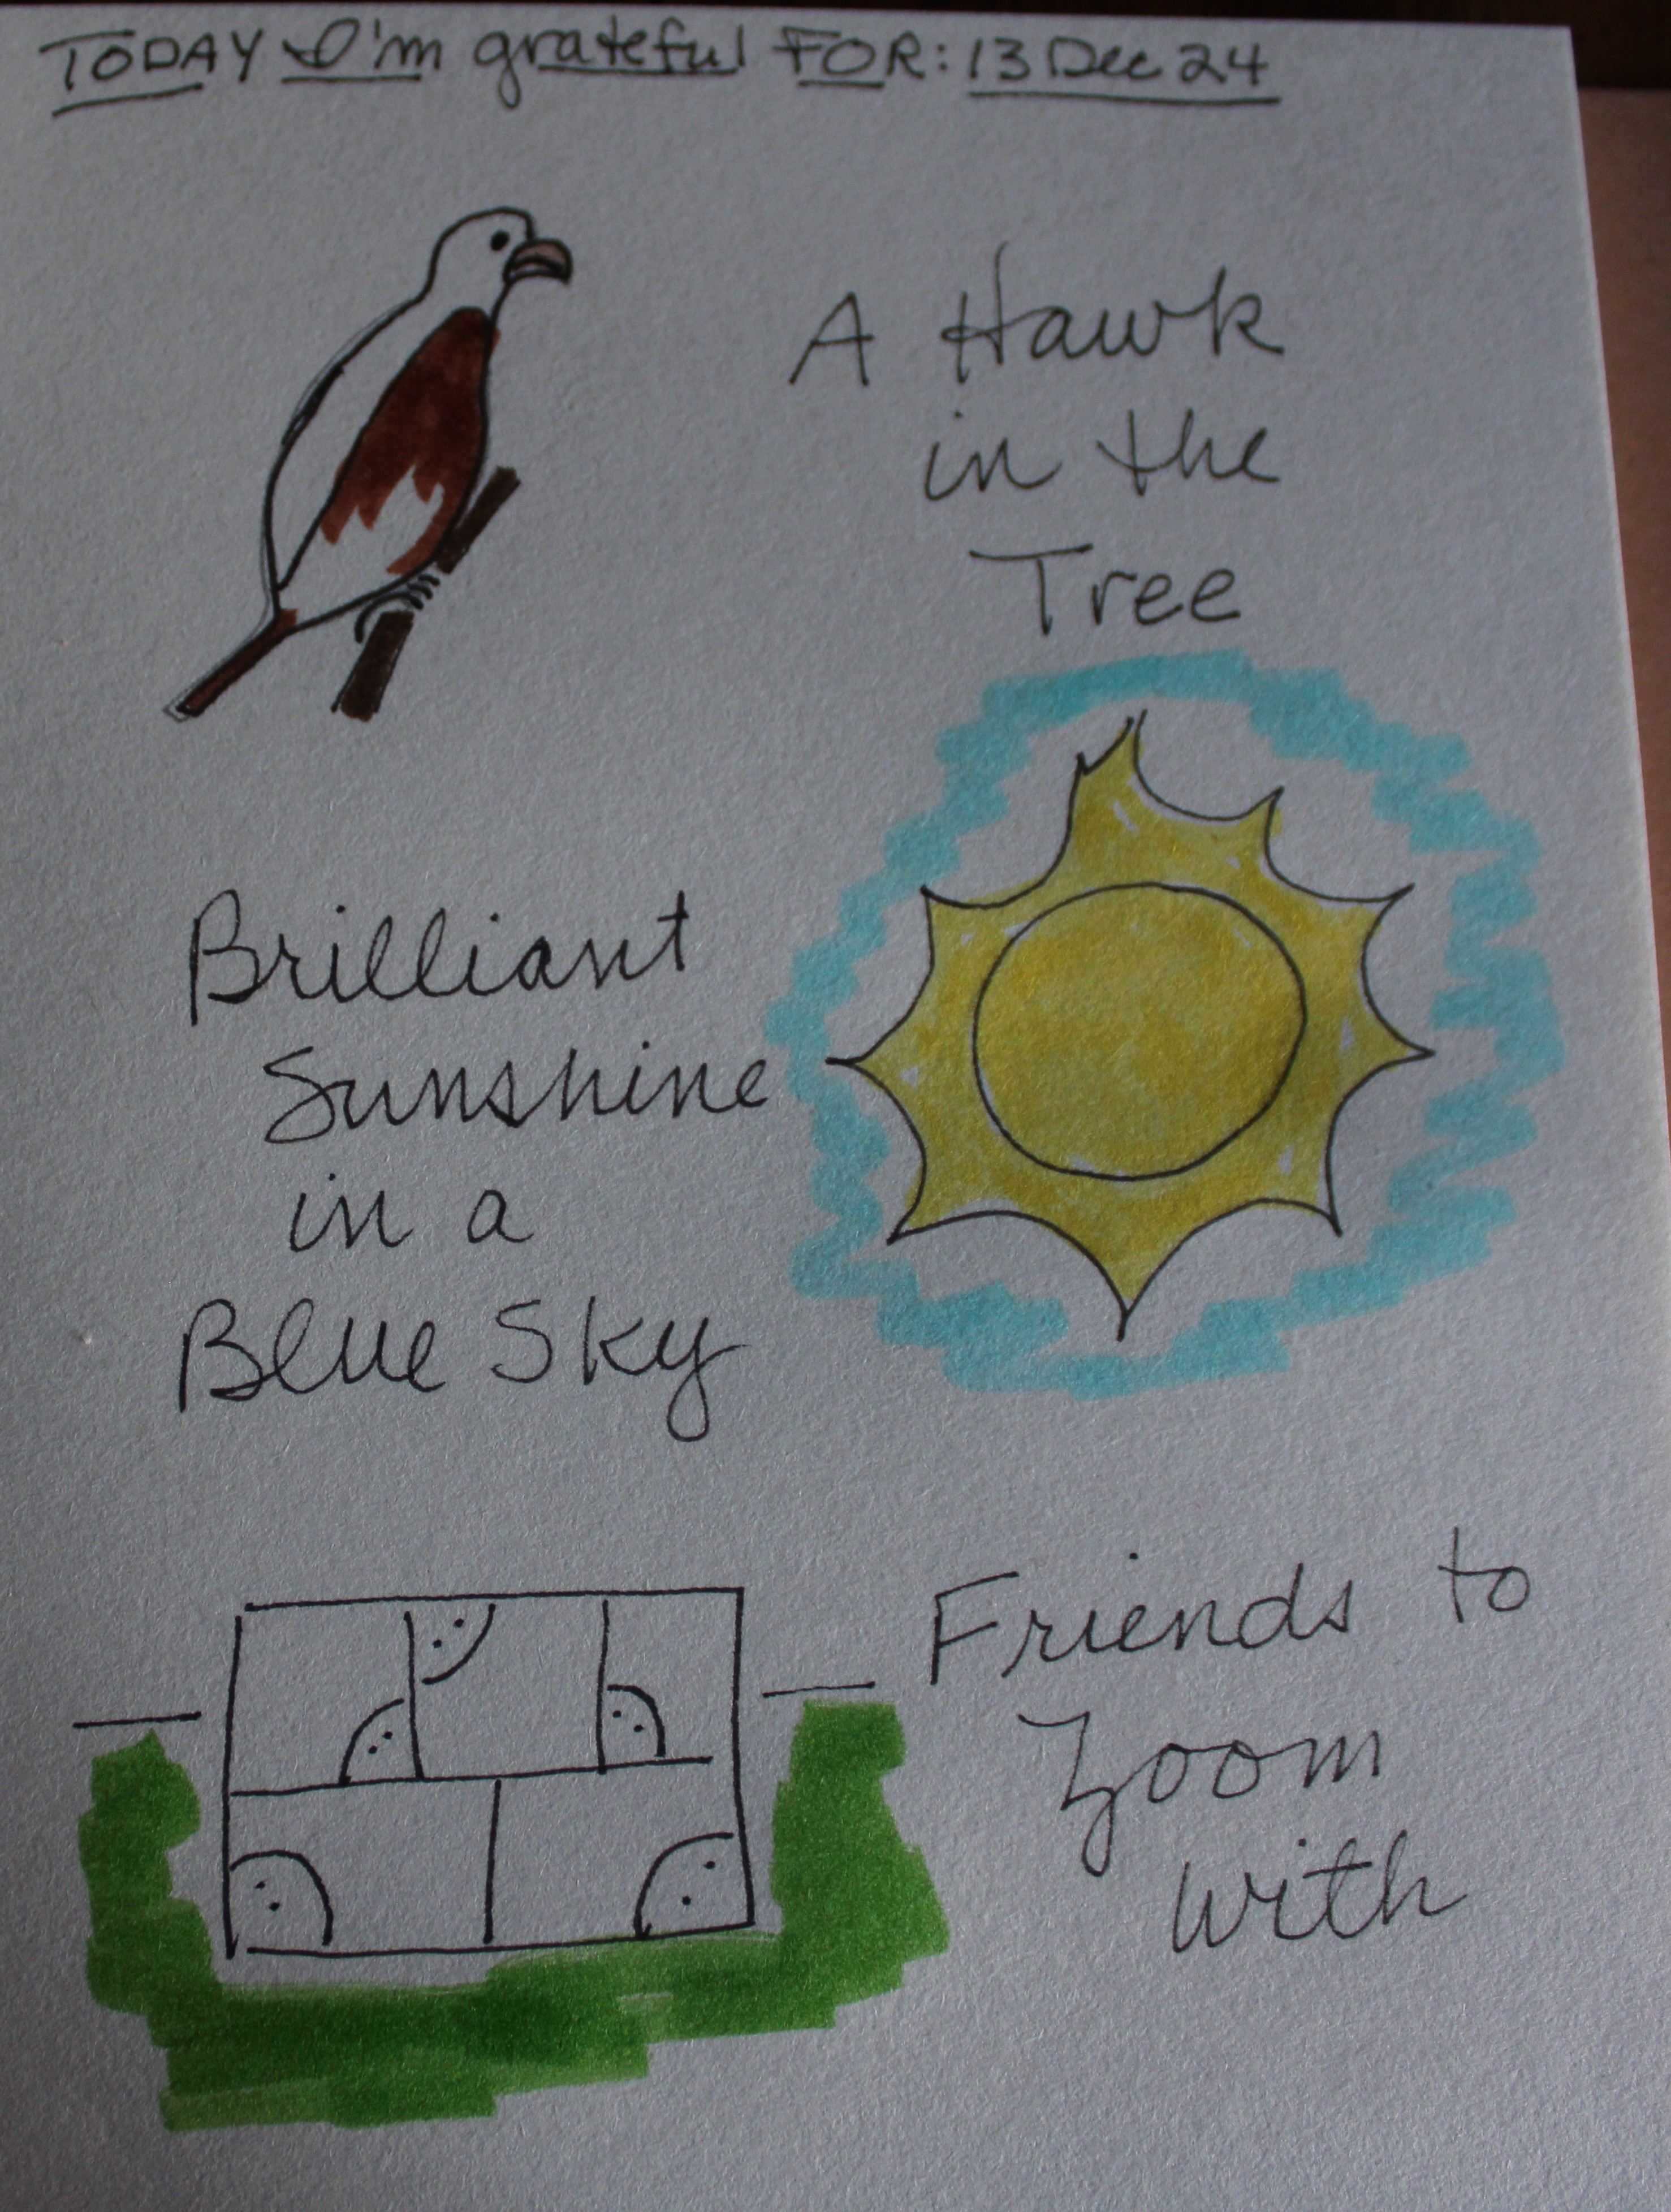 TODAY I'm grateful FOR: 13 Dec 24
A Hawk
in the
Tree
Brilliant
Sunshine
in a
Blue Sky
Friends to
Zoom
with